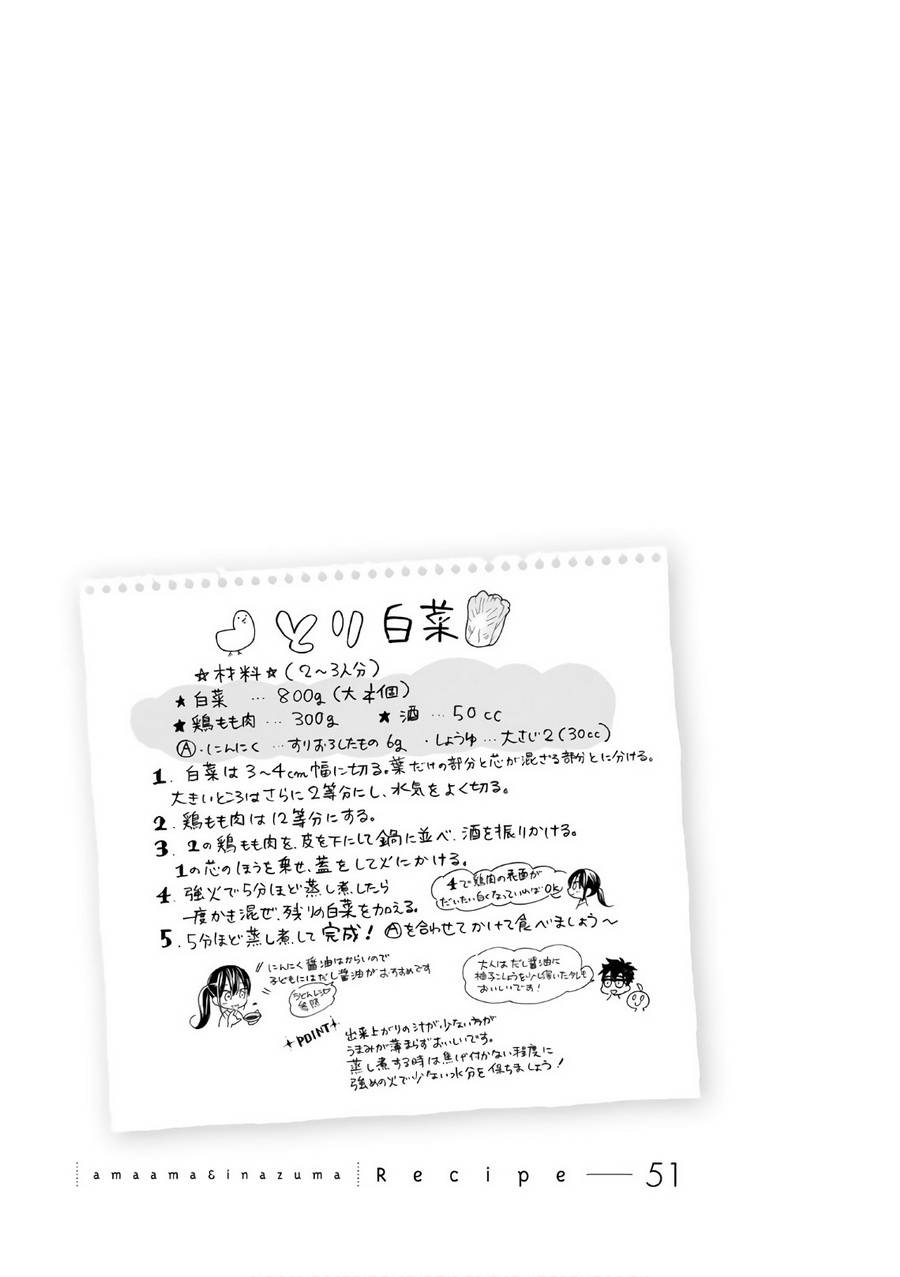 とり白菜
☆材料☆(2〜3人分)
★白菜 … 800g(大¼個)
★鶏もも肉 … 300g ★酒 … 50cc
Ⓐ・にんにく …すりおろしたもの6g ・しょうゆ…大さじ2(30cc)
1. 白菜は3〜4cm幅に切る。葉だけの部分と芯が混ざる部分とに分ける。
大きいところはさらに2等分にし、水気をよく切る。
2. 鶏もも肉は12等分にする。
3. 2の鶏もも肉を、皮を下にして鍋に並べ、酒を振りかける。
1の芯のほうを乗せ、蓋をして火にかける。
4. 強火で5分ほど蒸し煮したら
一度かき混ぜ、残りの白菜を加える。
4で鶏肉の表面が
だいたい白くなっていればOK
5. 5分ほど蒸し煮して完成! Ⓐを合わせてかけて食べましょう〜
にんにく醤油はからいので
子どもにはだし醤油がおすすめです
うどんレシピ
参照
大人はだし醤油に
柚子こしょうを少し溶いたタレも
おいしいです!
POINT
出来上がりの汁が少ない方が
うまみが薄まらずおいしいです。
蒸し煮する時は焦げ付かない程度に
強めの火で少ない水分を保ちましょう!
amaama&inazuma Recipe — 51